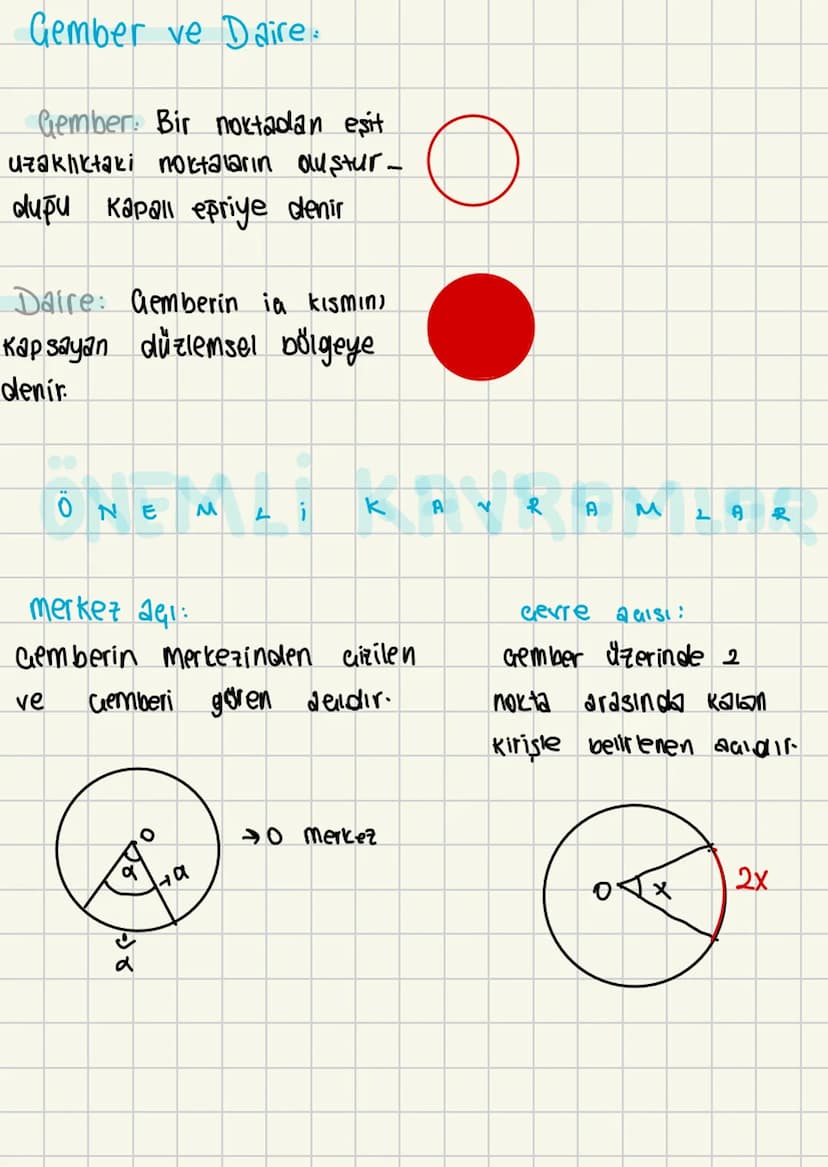 Çember ve Daire:
Çember: Bir noktadan eşit
uzaklıktaki noktaların oluştur-
duğu kapalı eğriye denir
Daire: Çemberin iç kısmını
kapsayan düzlemsel bölgeye
denir.
ÖNEMLİ KAVRAMLAR
ÖNEMLİ KAVRAMLAR
merkez açı:
Çemberin merkezinden çizilen
ve çemberi gören açıdır.
O
α
α
α
→O merkez
çevre açısı:
Çember üzerinde 2
nokta arasında kalan
kirişle belirlenen açıdır.
O x
2x